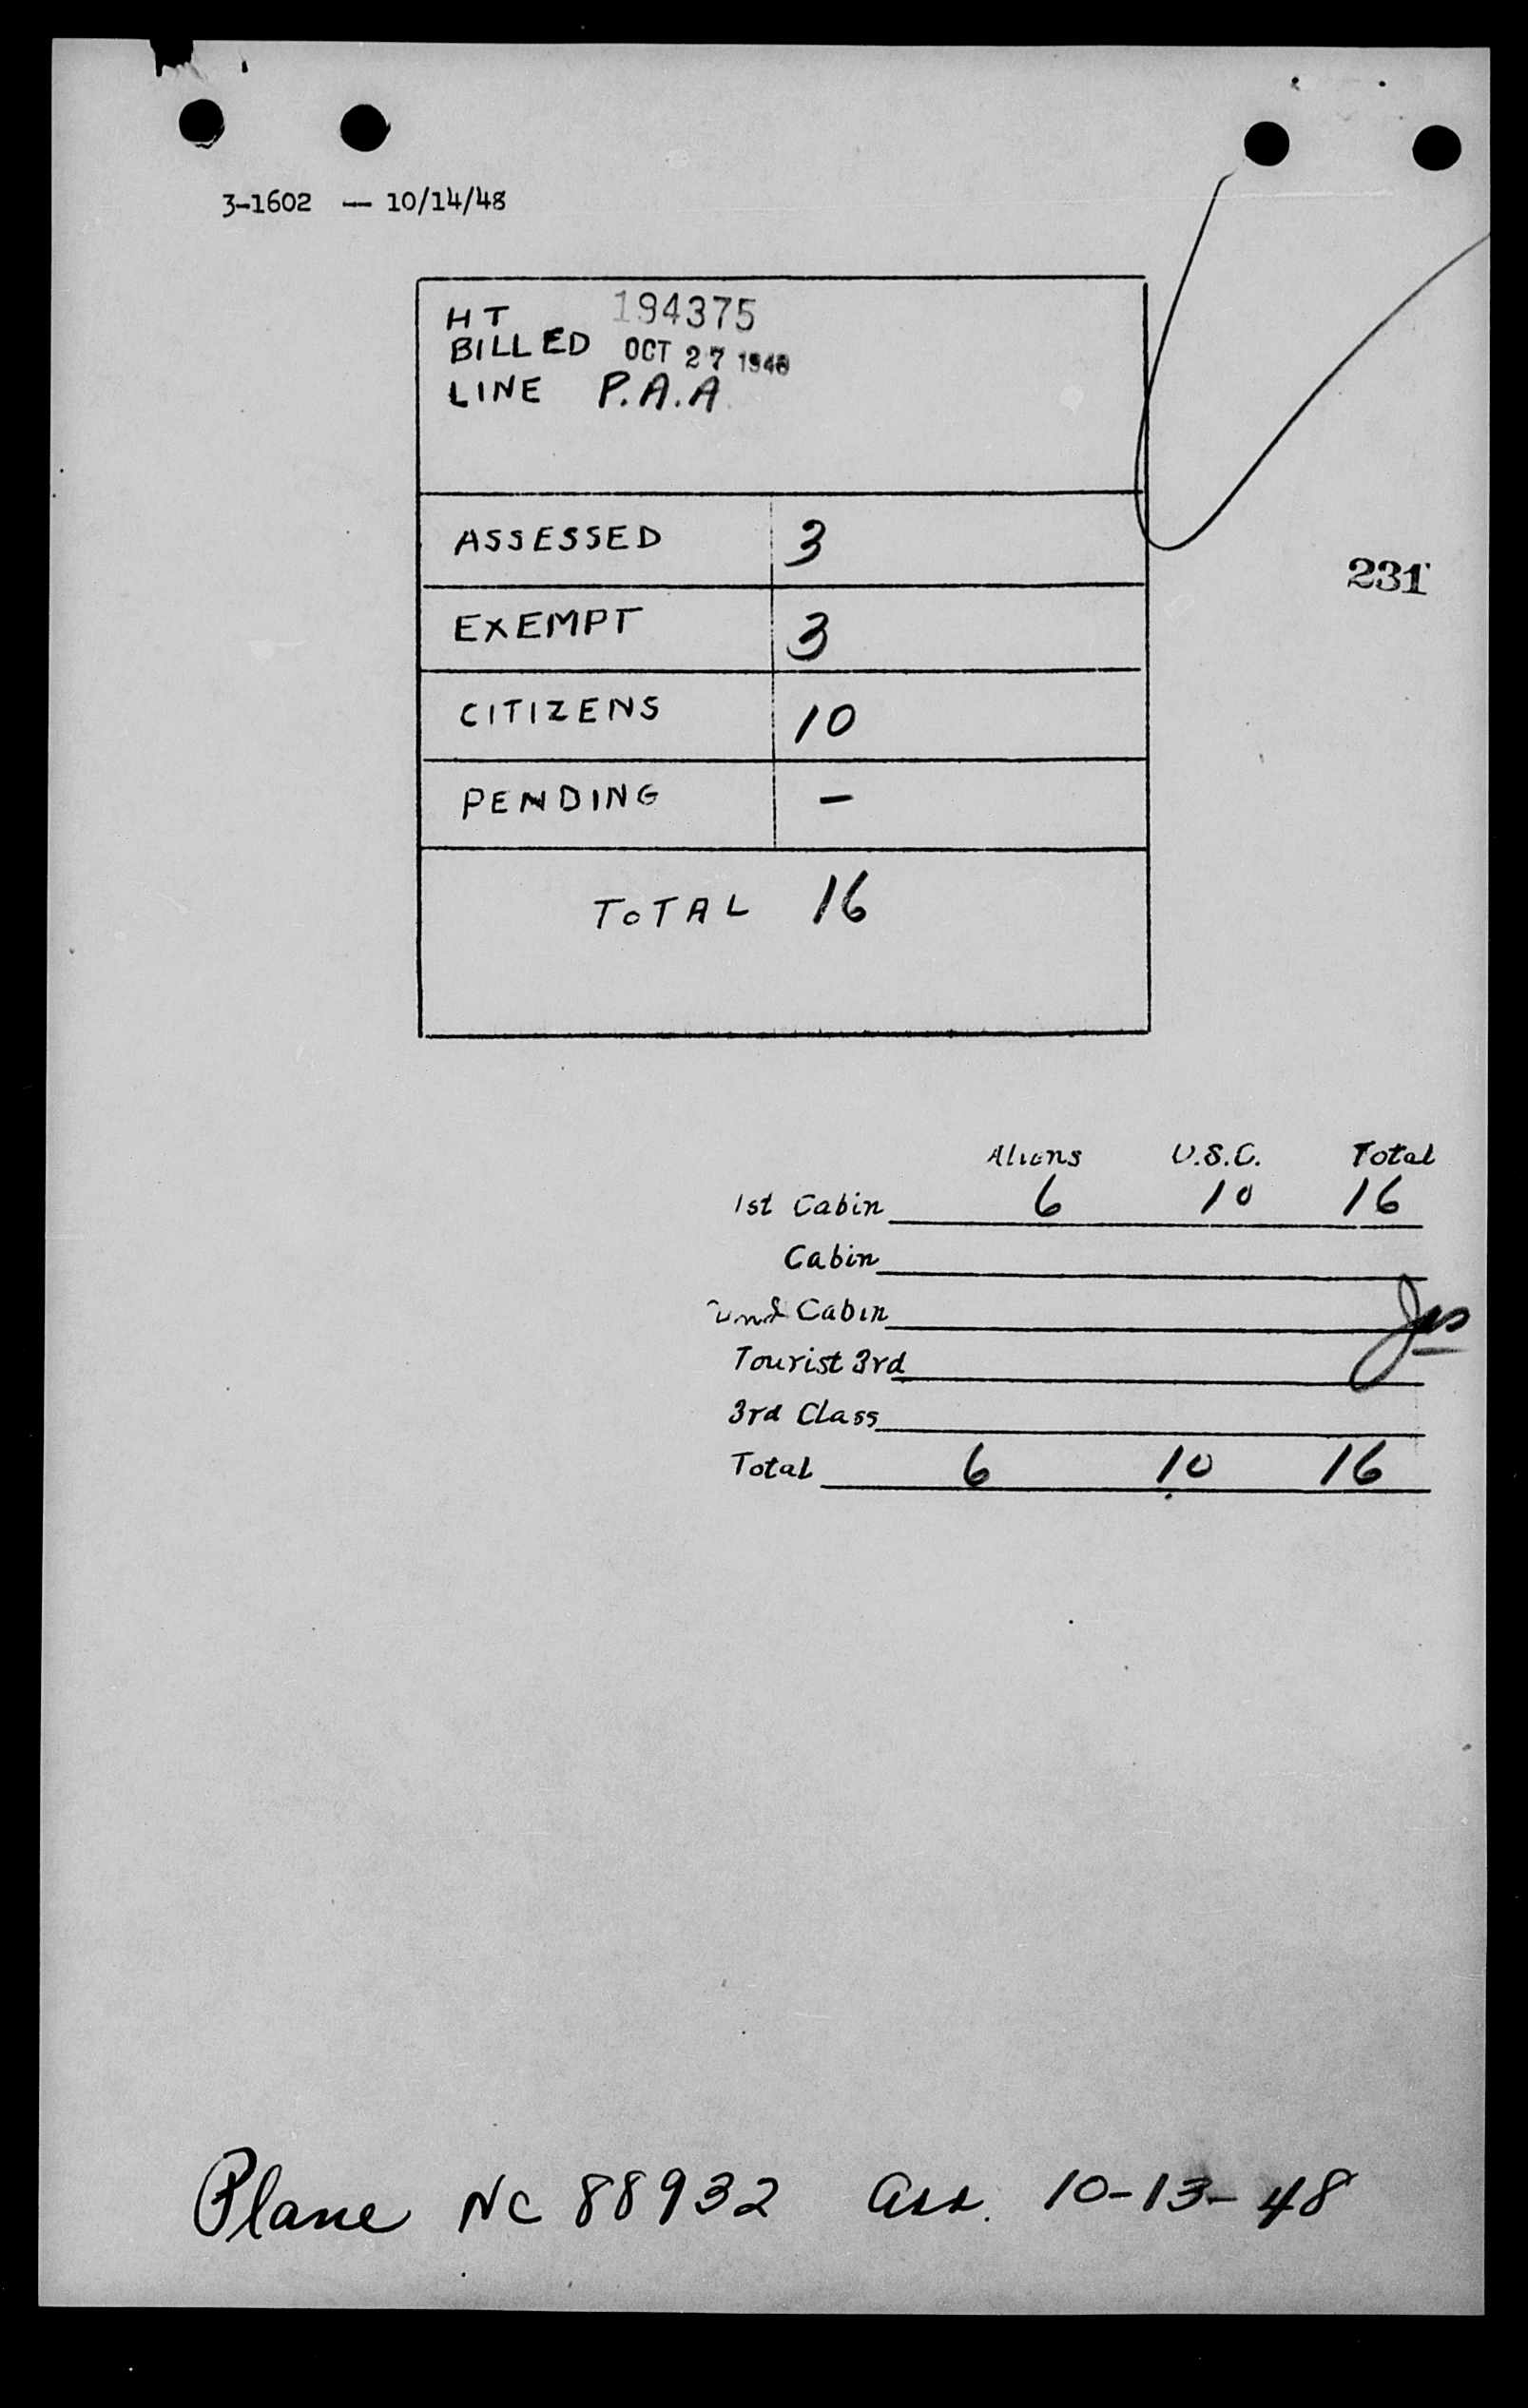 3-1602 — 10/14/48
HT 194375
BILLED OCT 27 1948
LINE P.A.A.
ASSESSED 3
231
EXEMPT 3
CITIZENS 10
PENDING –
TOTAL 16
Aliens U.S.C. Total
1st Cabin 6 10 16
Cabin
2nd Cabin
Tourist 3rd
3rd Class
Total 6 10 16
Plane NC 88932 Arr. 10-13-48